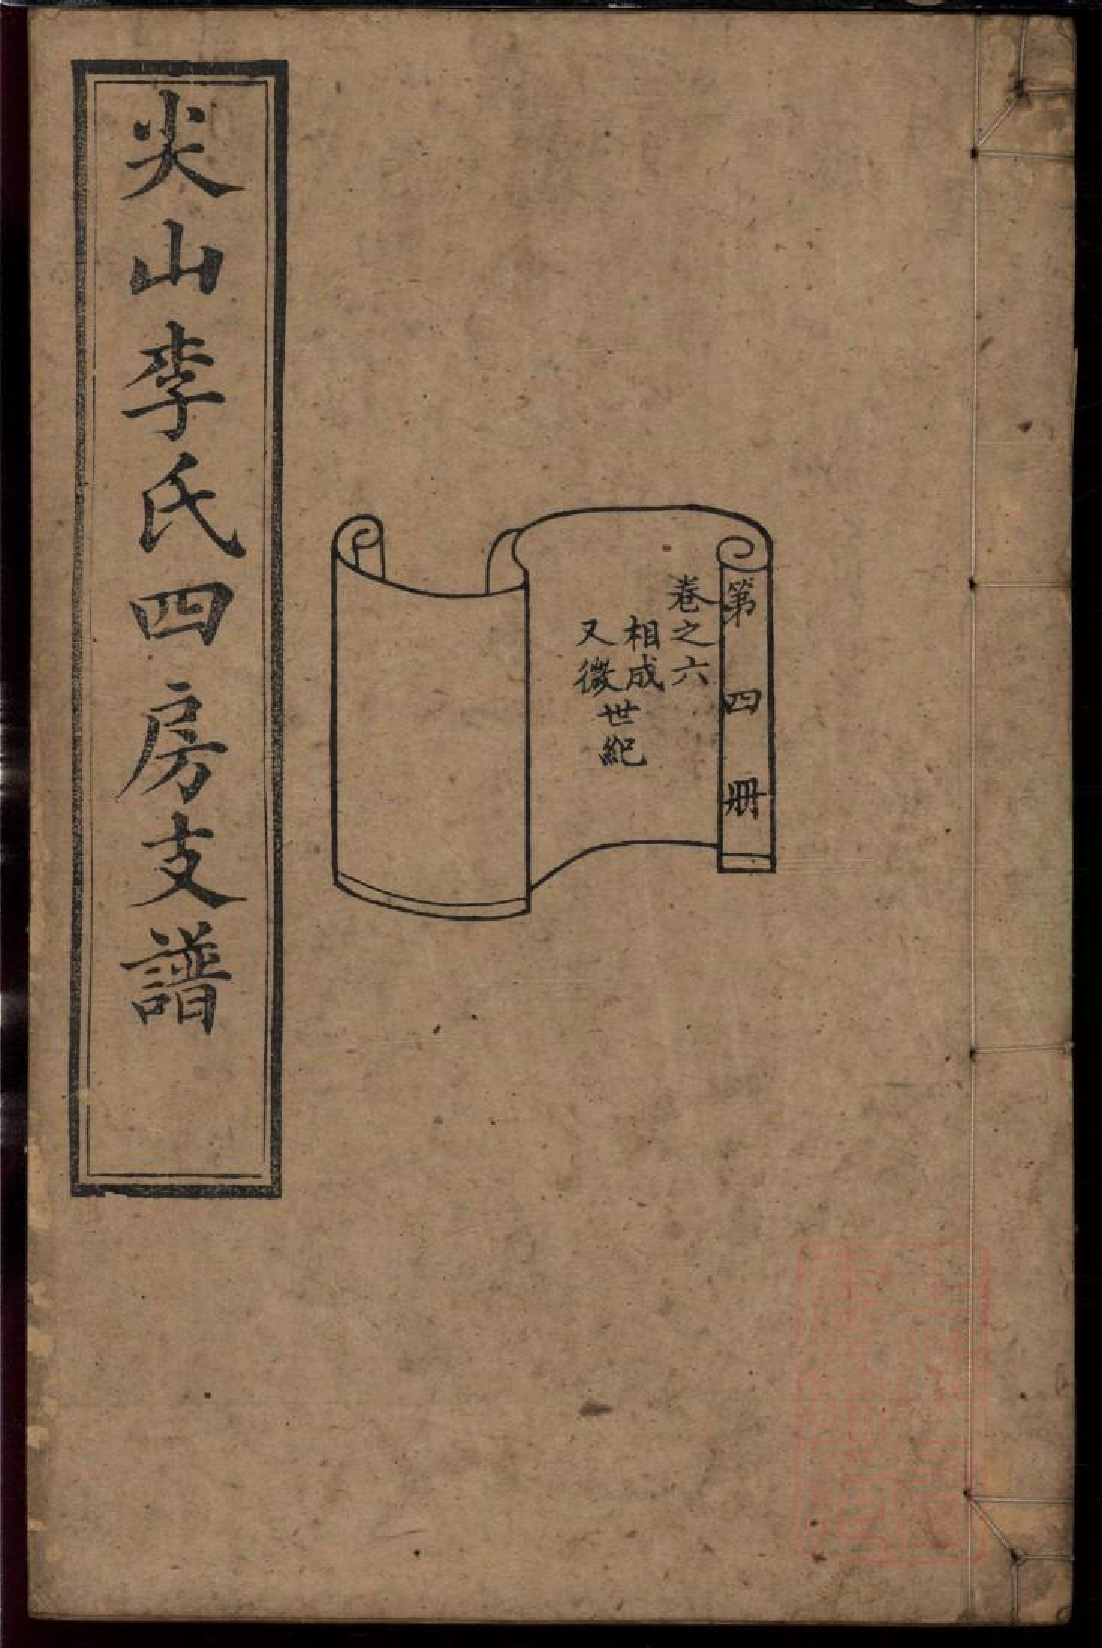 尖山李氏四房支譜
第四册
卷之六
相成
又微
世紀